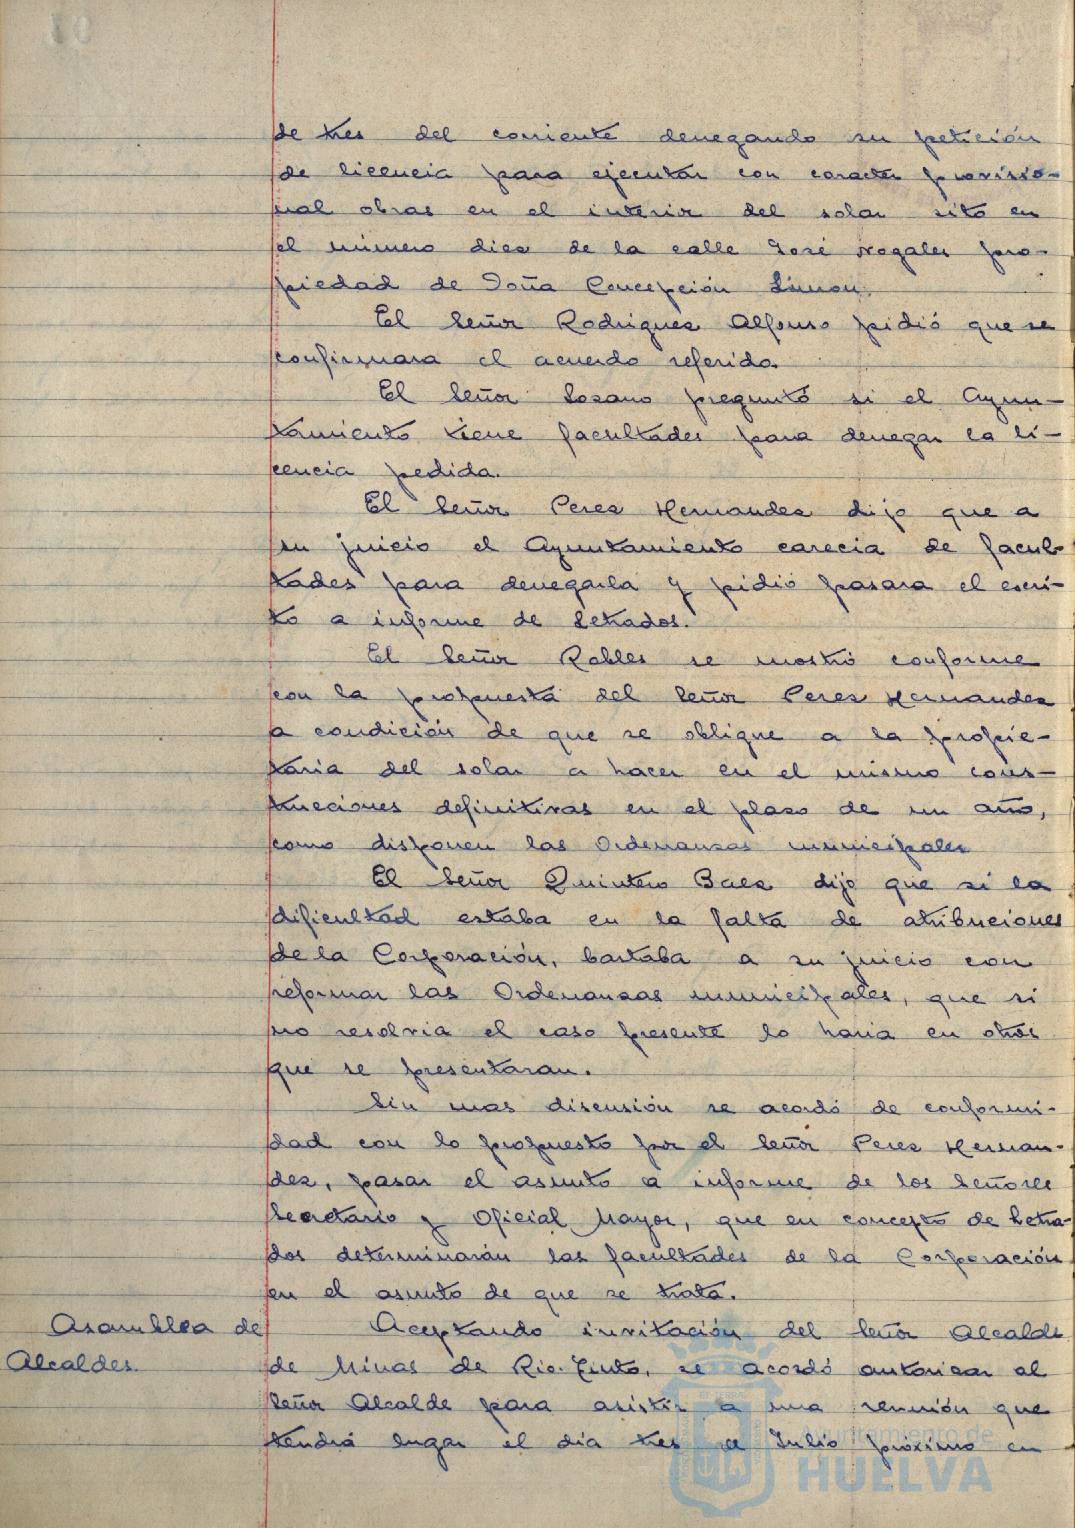 de tres del corriente denegando su petición
de licencia para ejecutar con caracter provisio-
nal obras en el interior del solar sito en
el número diez de la calle José Nogales pro-
piedad de Doña Concepción Limon.
El Señor Rodriguez Alfonso pidió que se
confirmara el acuerdo referido.
El Señor Lozano preguntó si el Ayun-
tamiento tiene facultades para denegar la li-
cencia pedida.
El Señor Perez Hernandez dijo que a
su juicio el Ayuntamiento carecia de facul-
tades para denegarla y pidió pasara el escri-
to a informe de Letrados.
El Señor Robles se mostró conforme
con la propuesta del Señor Perez Hernandez
a condición de que se obligue a la propie-
taria del solar a hacer en el mismo cons-
trucciones definitivas en el plazo de un año,
como disponen las Ordenanzas municipales
El Señor Quintero Baez dijo que si la
dificultad estaba en la falta de atribuciones
de la Corporación, bastaba a su juicio con
reformar las Ordenanzas municipales, que si
no resolvia el caso presente lo haria en otros
que se presentaran.
Sin mas discusión se acordó de conformi-
dad con lo propuesto por el Señor Perez Hernan-
dez, pasar el asunto a informe de los Señores
Secretario y Oficial Mayor, que en concepto de Letra-
dos determinarán las facultades de la Corporación
en el asunto de que se trata.
Asamblea de
Alcaldes.
Aceptando invitación del Señor Alcalde
de Minas de Rio-Tinto, se acordó autorizar al
Señor Alcalde para asistir a una reunión que
tendrá lugar el día tres de Julio próximo en
Ayuntamiento de
HUELVA